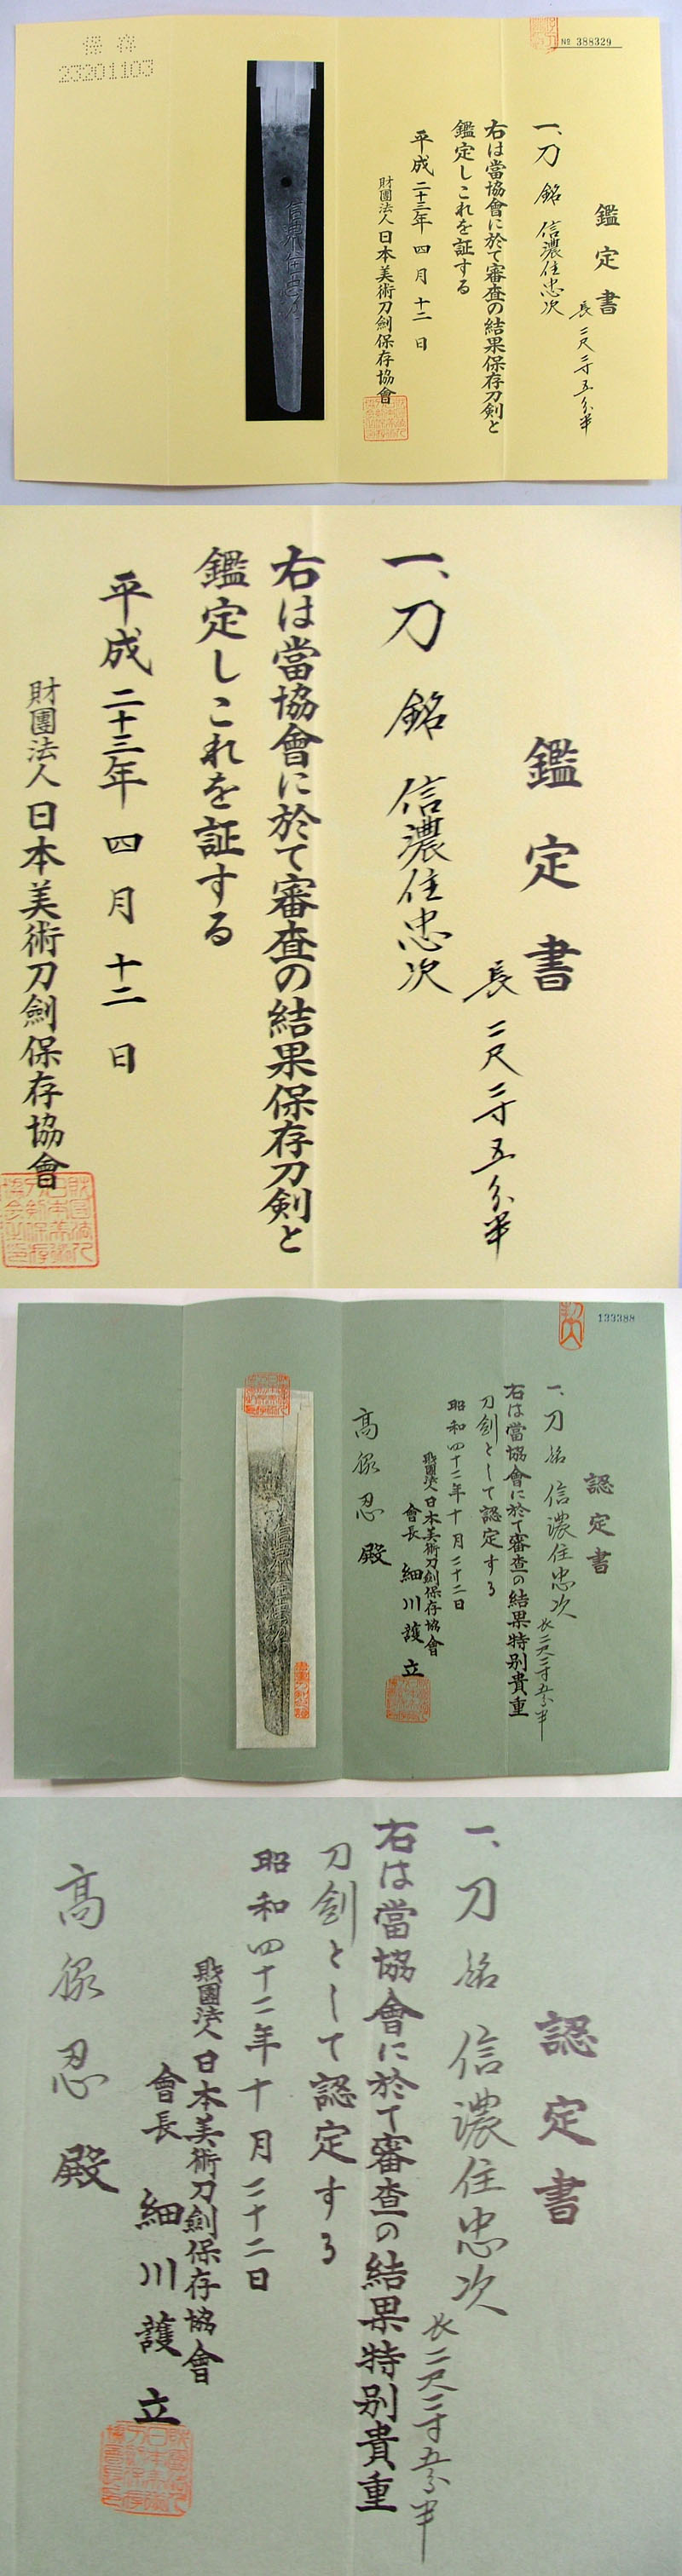 保存
23201103
№ 388329
鑑定書
一、刀 銘 信濃住忠次
長二尺二寸五分半
右は當協會に於て審査の結果保存刀剣と
鑑定しこれを証する
平成二十三年四月十二日
財團法人日本美術刀劍保存協會
信濃住忠次
鑑定書
一、刀 銘 信濃住忠次
長二尺二寸五分半
右は當協會に於て審査の結果保存刀剣と
鑑定しこれを証する
平成二十三年四月十二日
財團法人日本美術刀劍保存協會
133388
認定書
一、刀 銘 信濃住忠次
長二尺二寸五分半
右は當協會に於て審査の結果特别貴重
刀劍として認定する
昭和四十二年十月二十二日
財團法人日本美術刀劍保存協會
會長 細川護立
忍殿
認定書
一、刀 銘 信濃住忠次
長二尺二寸五分半
右は當協會に於て審査の結果特别貴重
刀劍として認定する
昭和四十二年十月二十二日
財團法人日本美術刀劍保存協會
會長 細川護立
忍殿